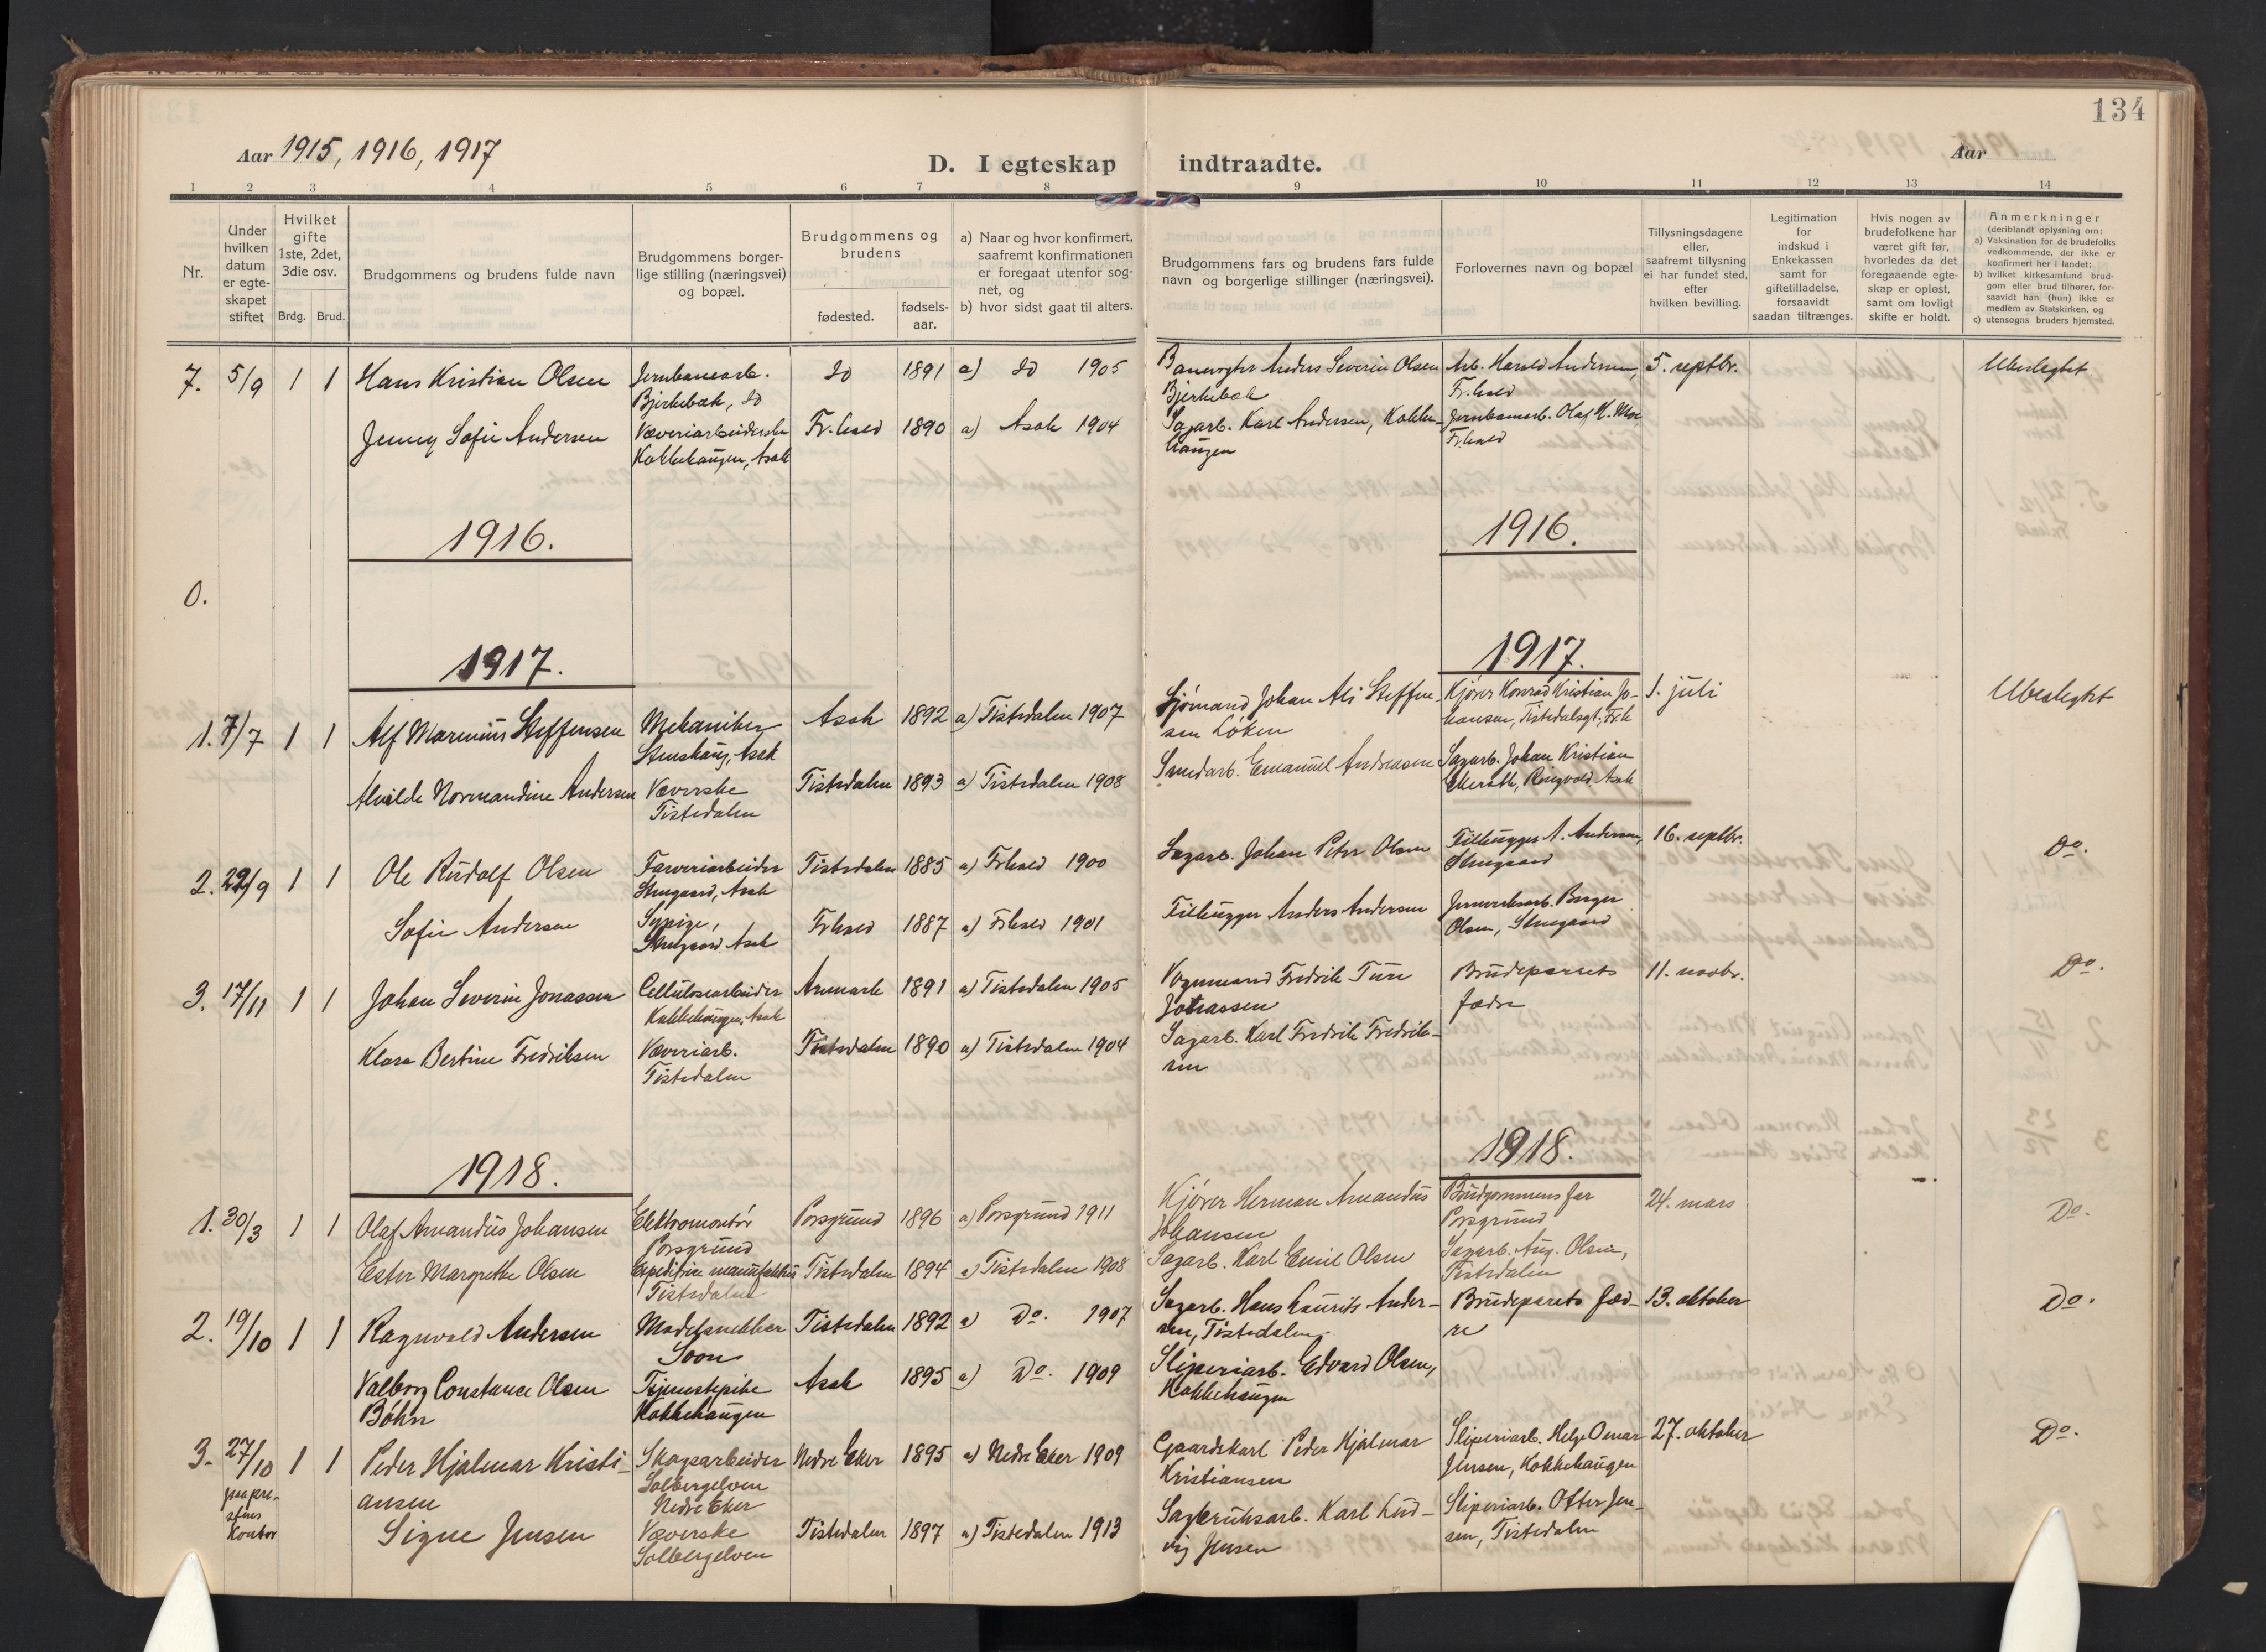 134
Aar 1915, 1916, 1917
D. I egteskap indtraadte.
Aar
1 2 3 4 5 6 7 8 9 10 11 12 13 14
Nr.
Under hvilken datum er egte-skapet stiftet
Hvilket gifte 1ste, 2det, 3die osv.
Brdg. Brud.
Brudgommens og brudens fulde navn
Brudgommens borger-lige stilling (næringsvei) og bopæl.
Brudgommens og brudens
fødested.
fødsels-aar.
a) Naar og hvor konfirmert, saafremt konfirmationen er foregaat utenfor sog-net, og
b) hvor sidst gaat til alters.
Brudgommens fars og brudens fars fulde navn og borgerlige stillinger (næringsvei).
Forlovernes navn og bopæl
Tillysningsdagene eller, saafremt tillysning ei har fundet sted, efter hvilken bevilling.
Legitimation for indskud i Enkekassen samt for giftetilladelse, forsaavidt saadan tiltrænges.
Hvis nogen av brudefolkene har været gift før, hvorledes da det foregaaende egte-skap er opløst, samt om lovligt skifte er holdt.
Anmerkninger
(deriblandt oplysning om:
a) Vaksination for de brudefolks vedkommende, der ikke er konfirmert her i landet;
b) hvilket kirkesamfund brud-gom eller brud tilhører, for-saavidt han (hun) ikke er medlem av Statskirken, og
c) utensogns bruders hjemsted.
7. 5/9 1 1 Hans Kristian Olsen
Jernbanearb.
Bjerkebæk, do
do 1891 a) do 1905
Banevogter Anders Severin Olsen
Bjerkebæk
Arb. Harald Andersen,
Fr.hald
5. septbr.
Ubeslegtet
Jenny Sofie Andersen
Væveriarbeiderske
Kokkehaugen, Asak
Fr.hald 1890 a) Asak 1904
Sagarb. Karl Andersen, Kokke-
haugen
Jernbanearb. Olaf M. Moe
Fr.hald
1916.
1916.
0.
1917.
1917.
1. 7/7 1 1 Alf Marenius Steffensen
Mekaniker
Stenshaug, Asak
Asak 1892 a) Tistedalen 1907
Sjømand Johan Ali Steffen-
sen Løken
Kjører Konrad Kristian Jo-
hansen, Tistedalsgt., Frh
1. juli
Ubeslegtet
Alvilde Normandine Andersen
Væverske
Tistedalen
Tistedalen 1893 a) Tistedalen 1908
Smedarb. Emanuel Andreasen
Sagarb. Johan Kristian
Ringvold, Asak
2. 29/9 1 1 Ole Rudolf Olsen
Farveriarbeider
Stengaard, Asak
Tistedalen 1885 a) Frhald 1900
Sagarb. Johan Peter Olsen
Filhugger A. Andersen,
Stengaard
16. septbr.
Do.
Sofie Andersen
Sypige,
Stengaard, Asak
Frhald 1887 a) Frhald 1901
Filhugger Anders Andersen
Jernverksarb. Birger
Olsen, Stengaard
3. 17/11 1 1 Johan Severin Jonassen
Cellulosearbeider
Kokkehaugen, Asak
Aremark 1891 a) Tistedalen 1905
Vognmand Fredrik Ture
Jonassen
Brudeparrets
fædre
11. novbr.
Do.
Klara Bertine Fredriksen
Væveriarb.
Tistedalen
Tistedalen 1890 a) Tistedalen 1904
Sagarb. Karl Fredrik Fredrik-
sen
1918.
1918.
1. 30/3 1 1 Olaf Amandus Johansen
Elektromontør
Porsgrund
Porsgrund 1896 a) Porsgrund 1911
Kjører Herman Amandus
Johansen
Brudgommens far
Porsgrund
24. mars
Do.
Ester Margrethe Olsen
Expeditrice manufaktur
Tistedalen
Tistedalen 1894 a) Tistedalen 1908
Sagarb. Karl Emil Olsen
Sagarb. Aug. Olsen,
Tistedalen
2. 19/10 1 1 Ragnvald Andersen
Modelsnekker
Soon
Tistedalen 1892 a) Do. 1907
Sagarb. Hans Laurits Ander-
sen, Tistedalen
Brudeparets fæd-
re
13. oktober
Do.
Valborg Constance Olsen
Bøhn
Tjenestepike
Kokkehaugen
Asak 1895 a) Do. 1909
Sliperiarb. Edvard Olsen,
Kokkehaugen
3. 27/10 1 1 Peder Hjalmar Kristi-
ansen
paa pre-
stens
kontor
Skogsarbeider
Solbergelven
Nedre Eker
Nedre Eker 1895 a) Nedre Eker 1909
Gaardskarl Peder Hjalmar
Kristiansen
Sliperiarb. Helge Omar
Jensen, Kokkehaugen
27. oktober
Do.
Signe Jensen
Væverske
Solbergelven
Tistedalen 1897 a) Tistedalen 1913
Sagbruksarb. Karl Lud-
vig Jensen
Sliperiarb. Otter Jen-
sen, Tistedalen